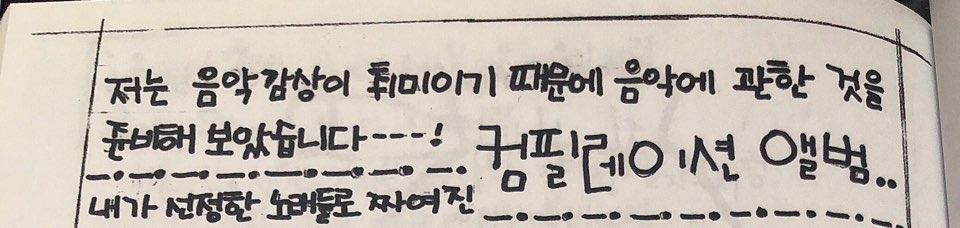 저는 음악감상이 취미이기 때문에 음악에 관한 것을
준비해 보았습니다---! 컴필레이션 앨범..
내가 선정한 노래들로 짜여진